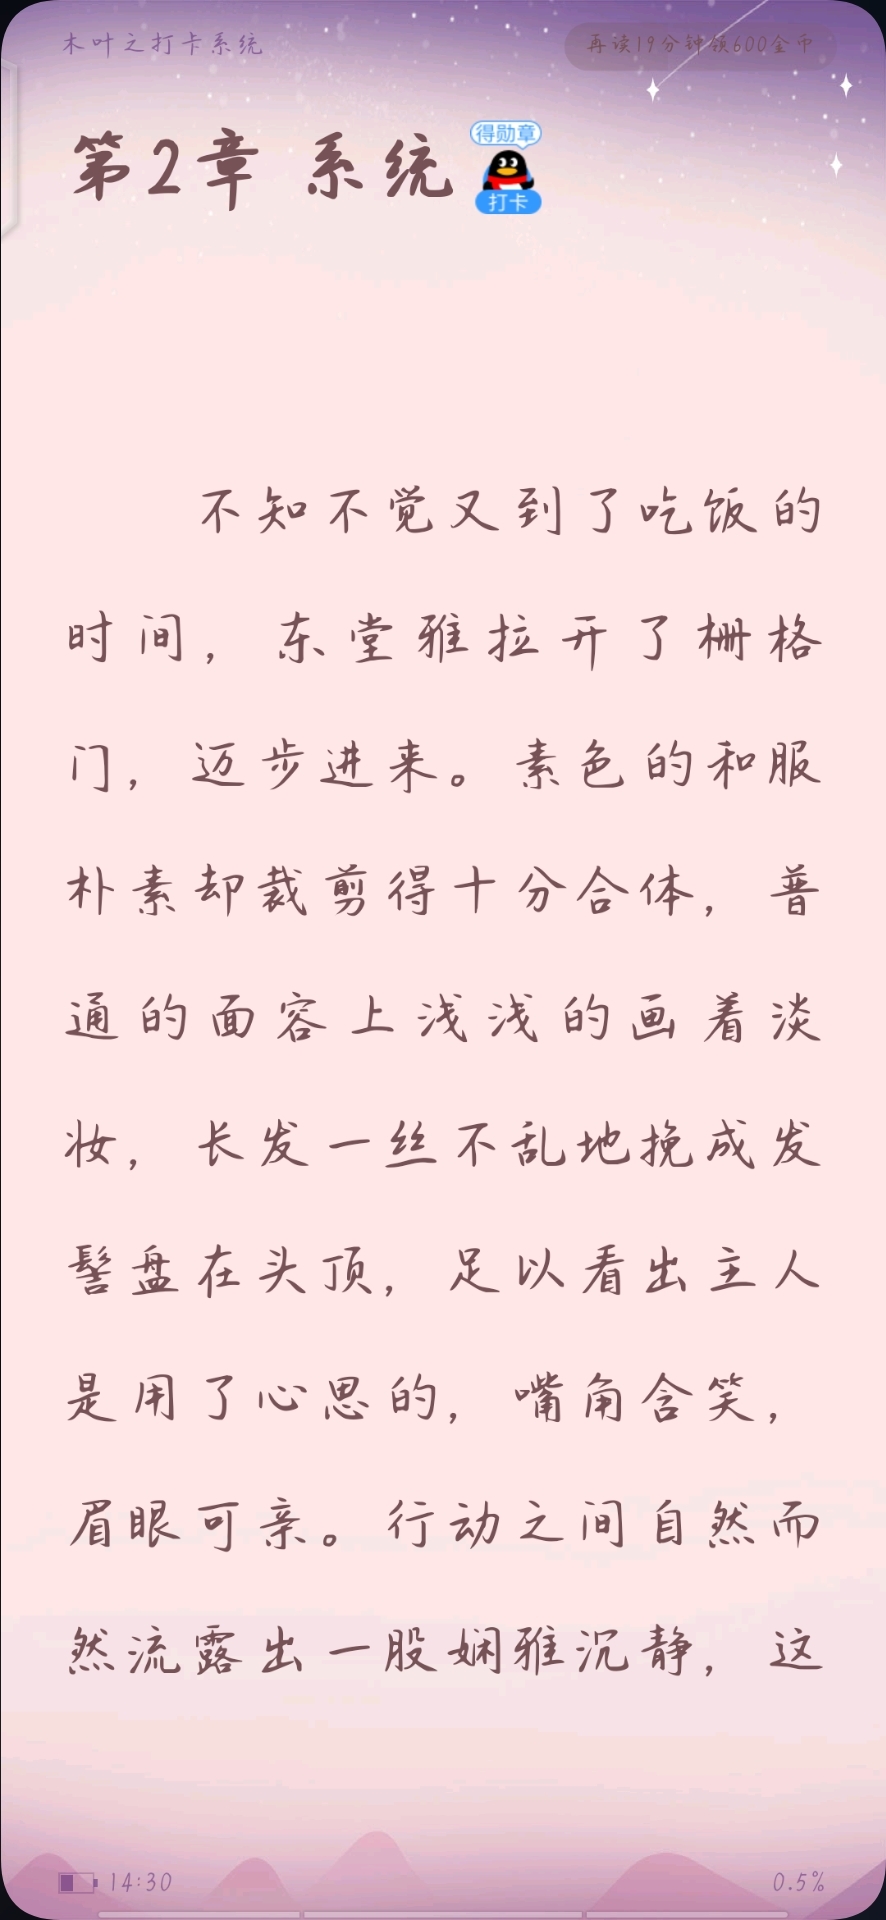 木叶之打卡系统
再读19分钟领600金币
第2章 系统
得勋章
打卡
不知不觉又到了吃饭的
时间，东堂雅拉开了栅格
门，迈步进来。素色的和服
朴素却裁剪得十分合体，普
通的面容上浅浅的画着淡
妆，长发一丝不乱地挽成发
髻盘在头顶，足以看出主人
是用了心思的，嘴角含笑，
眉眼可亲。行动之间自然而
然流露出一股娴雅沉静，这
14:30
0.5%